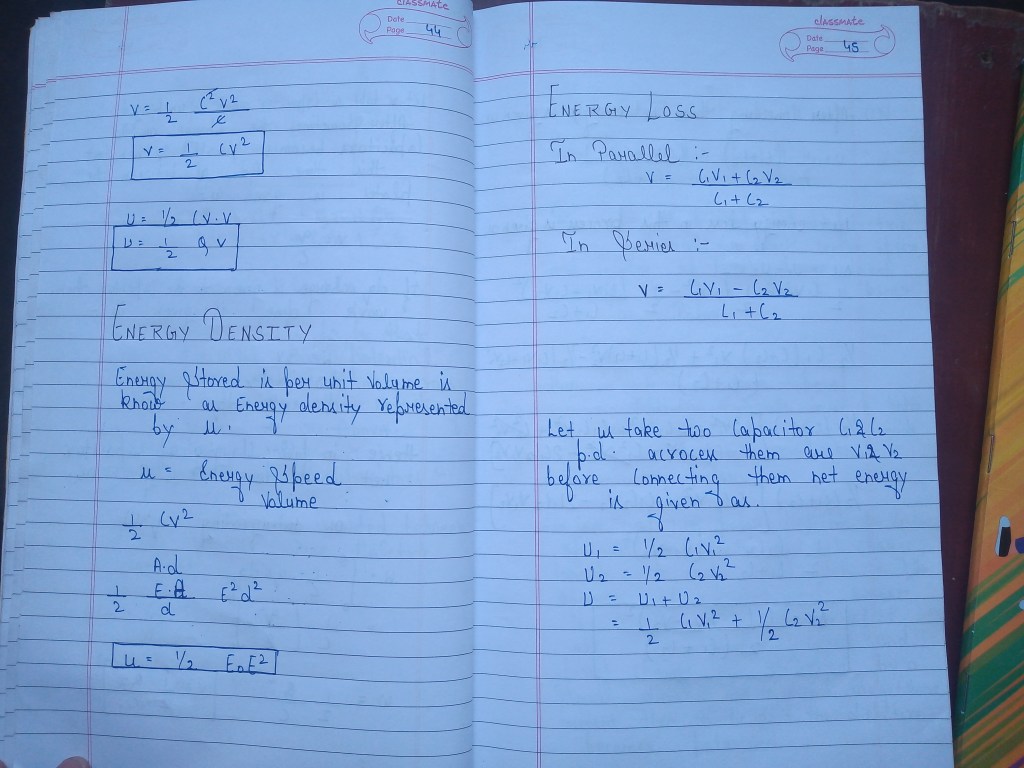 classmate
Date
Page 44
V = 1/2 C²V²/c
V = 1/2 CV²
U = 1/2 CV.V
U = 1/2 QV
ENERGY DENSITY
Energy Stored is per unit Volume is
know as Energy density represented
by u.
u = Energy Speed
Volume
1/2 CV²
A.d
1/2 E.A/d E²d²
u = 1/2 E₀E²
classmate
Date
Page 45
ENERGY LOSS
In Parallel :-
V = C₁V₁ + C₂V₂
C₁ + C₂
In Series :-
V = C₁V₁ - C₂V₂
C₁ + C₂
Let us take two Capacitor C₁ & C₂
p.d. acrocss them are V₁ & V₂
before Connecting them net energy
is given as.
U₁ = 1/2 C₁V₁²
U₂ = 1/2 C₂V₂²
U = U₁ + U₂
= 1/2 C₁V₁² + 1/2 C₂V₂²